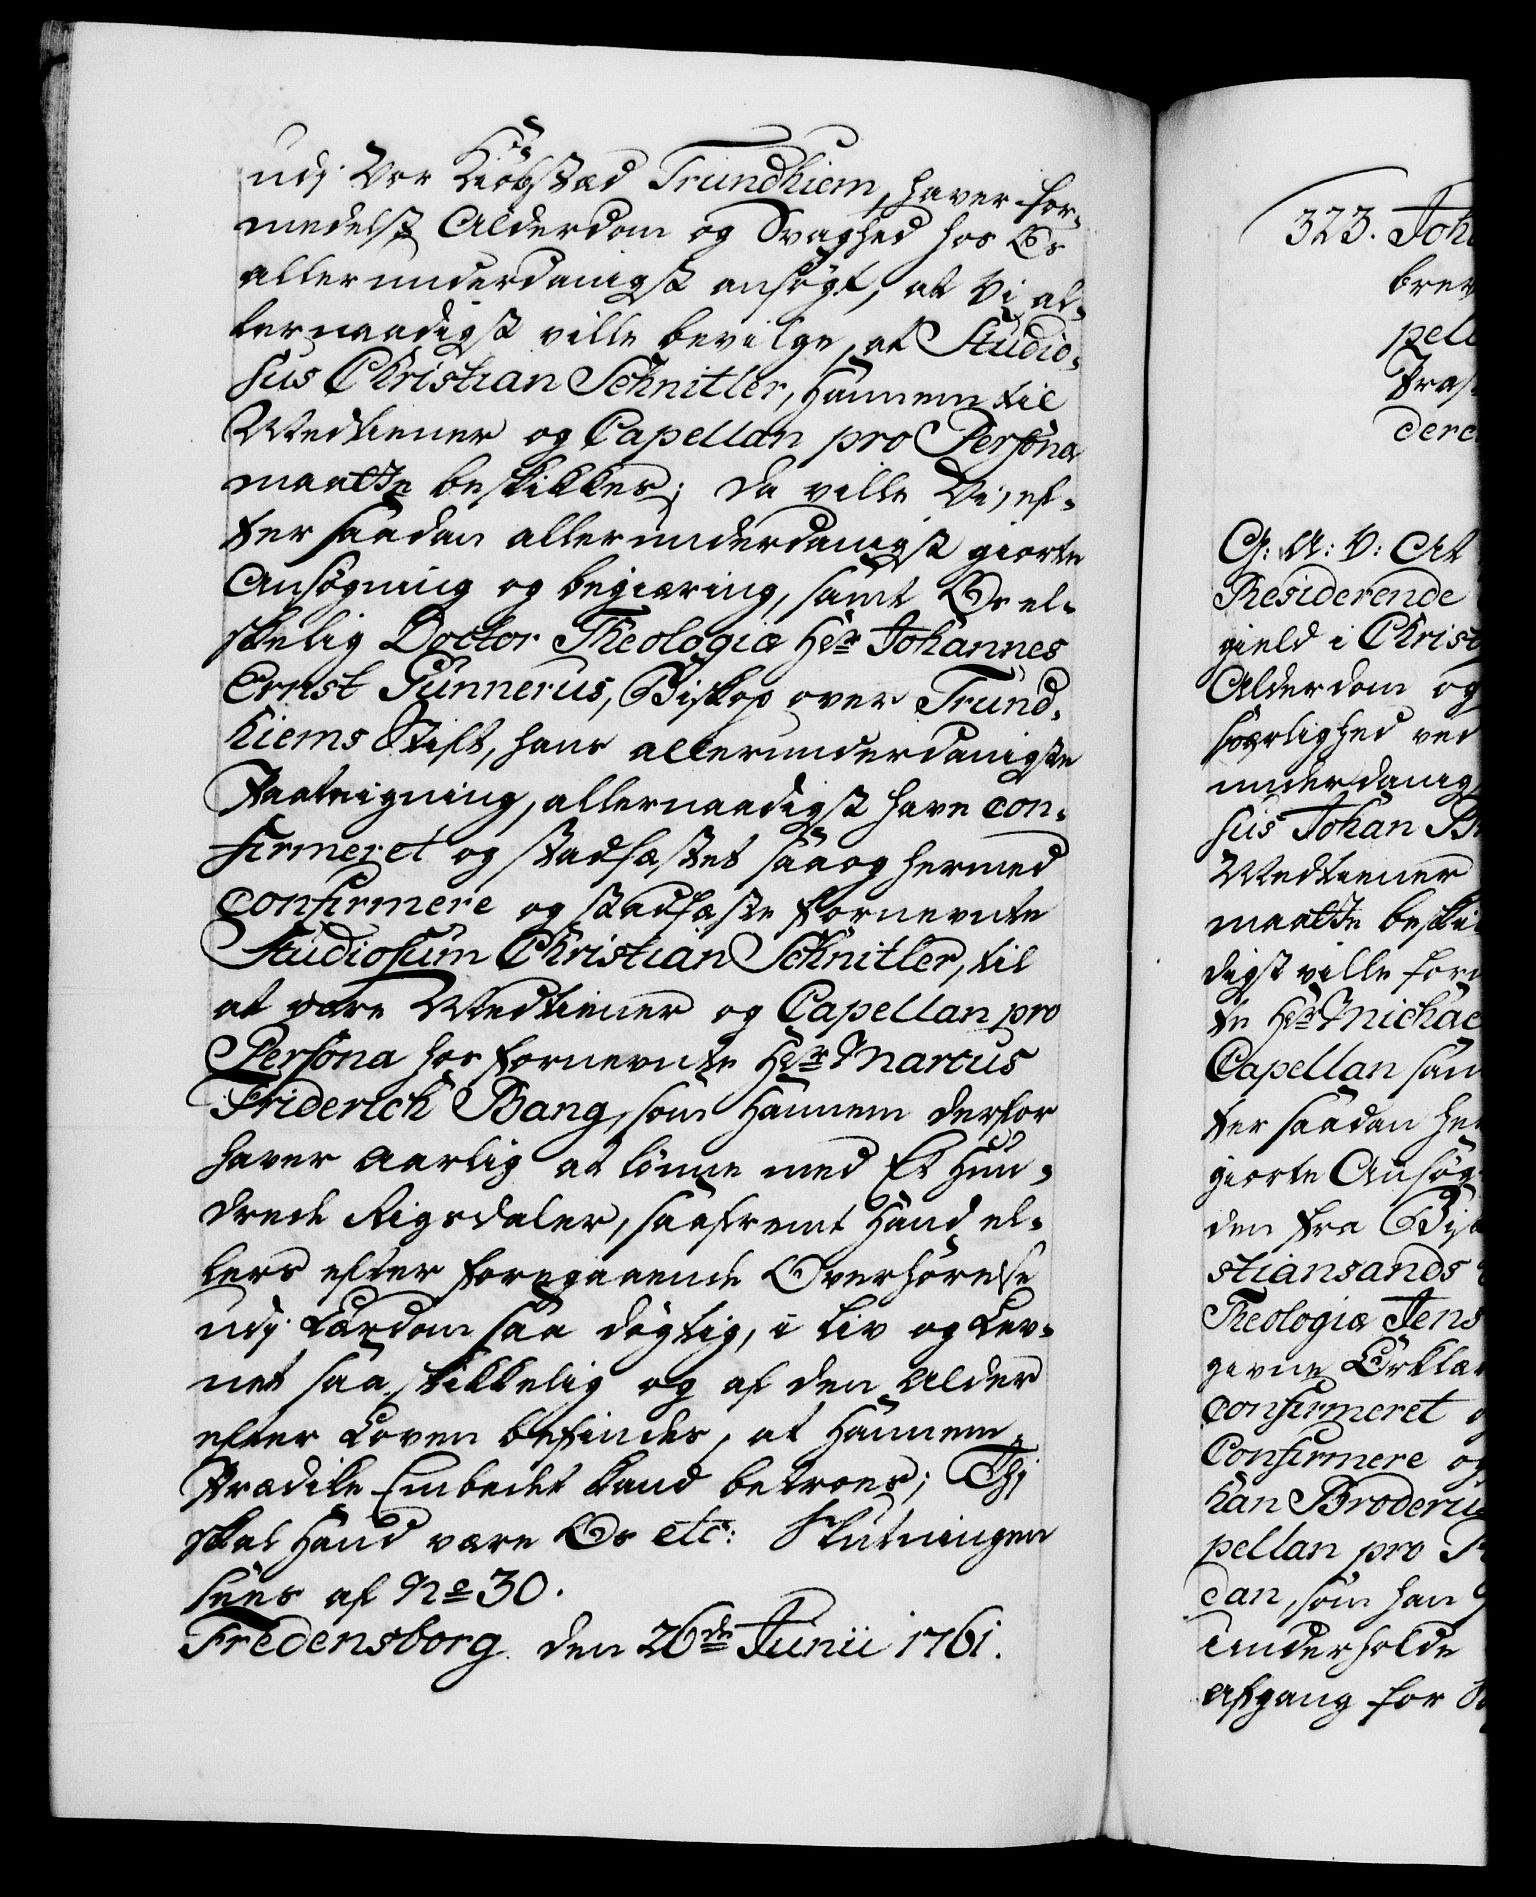 udj Vor Kiöbstæd Trundhiem, haver for-
medelst Alderdom og Svaghed hos Os
allerunderdanigst ansøgt, at Vi al-
lernaadigst ville bevilge, at Studio-
sus Christian Schnitler, Hannem til
Medtiener og Capellan pro Persona
maatte beskikkes; Da ville Vi, ef-
ter saadan allerunderdanigst giorte
Ansøgning og begiæring, samt Os el-
skelig Doctor Theologiæ Hr Johannes
Ernst Gunnerus, Biskop over Trund-
hiems Stift, hans allerunderdanigste
Paategning, allernaadigst have con-
firmeret og stadfæstet saa og hermed
confirmere og stadfæste fornevnte
Studiosum Christian Schnitler, til
at være Medtiener og Capellan pro
Persona hos fornevnte Hr Marcus
Friderich Bang, som Hannem derfor
haver aarlig at lønne med Et Hun-
drede Rigsdaler, saafremt Hand el-
lers efter foregaaende Overhørelse
udj Lærdom saa døgtig, i Liv og Lev-
net saa skikkelig og af den Alder
efter Loven befindes, at Hannem
Prædike Embedet kand betroes; Thi
skal Hand være Os etc: Slutningen
sees af No 30.
Fredensborg den 26de Junii 1761.
323. Joh
brev
pell
Præs
dere
G: A: V: At
Residerende
gield i Christ
Alderdom og
værlighed ved
underdanig
sus Johan Br
Medtiener
maatte beski
digst ville for
te Hr Michae
Capellan sam
ter saadan he
giorte Ansøg
den fra Bis
stiansands
Theologiæ Jens
givne Erklæ
confirmeret o
Confirmere og
han Broderu
pellan pro P
dan, som han
underholde
Afgang for